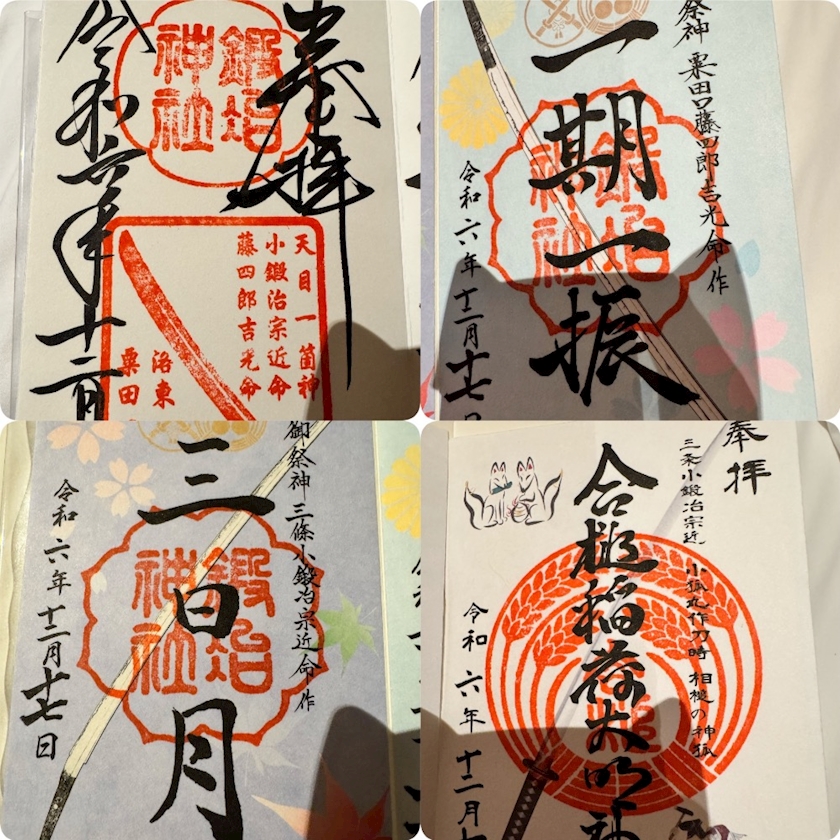 奉拝
鍛冶
神社
令和六年十二月
天目一箇神
小鍛冶宗近命
藤四郎吉光命
洛東
粟田
祭神 粟田口藤四郎吉光命作
一期一振
鍛冶
神社
令和六年十二月十七日
御祭神 三條小鍛冶宗近命作
三日月
鍛冶
神社
令和六年十二月十七日
奉拝
三条小鍛冶宗近 小狐丸作刀時 相槌の神狐
合槌稲荷大明神
令和六年十二月